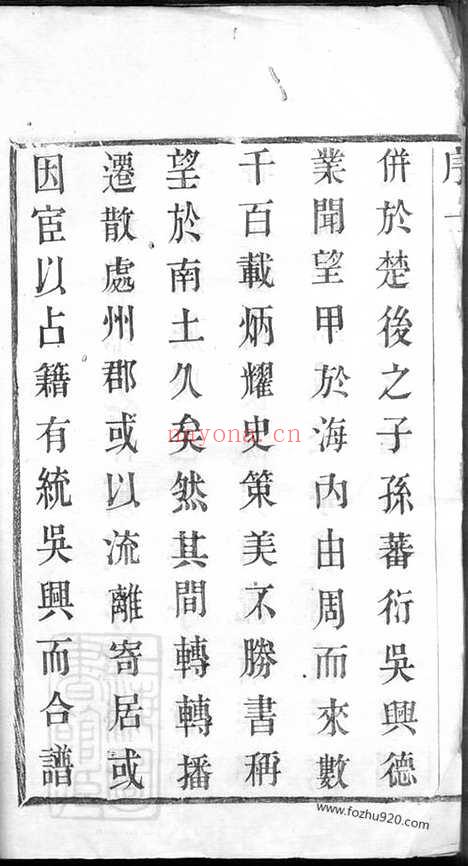 序
併於楚後之子孫蕃衍吳興德
業聞望甲於海内由周而來數
千百載炳耀史策美不勝書稱
望於南土久矣然其間轉轉播
遷散處州郡或以流離寄居或
因宦以占籍有統吳興而合譜
nayona.cn
www.fozhu920.com